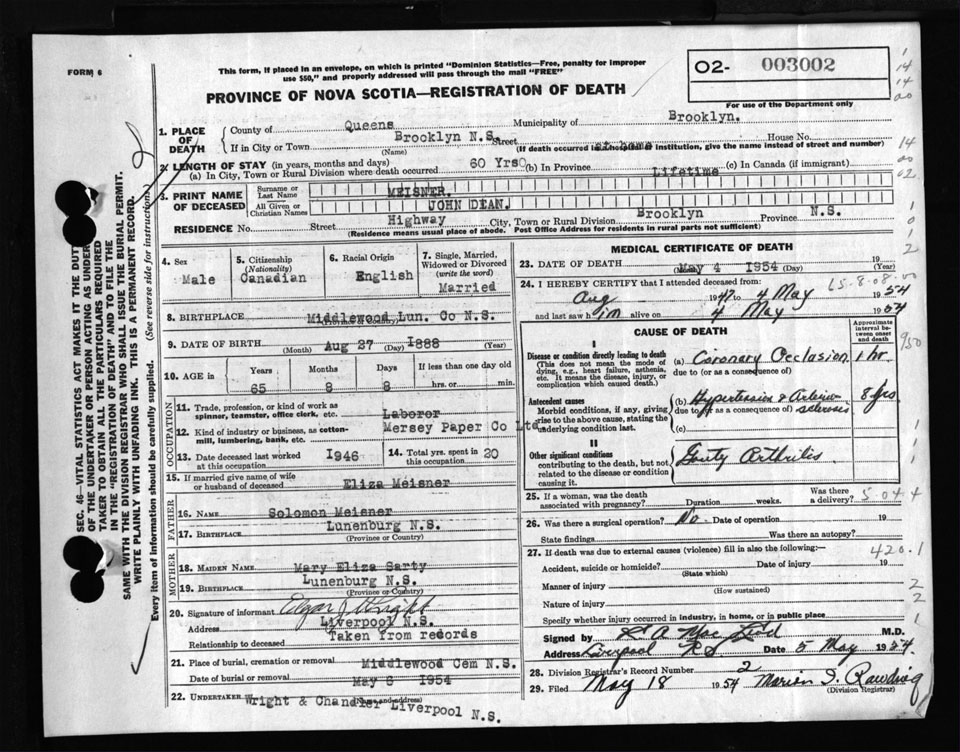 FORM 6
This form, if placed in an envelope, on which is printed "Dominion Statistics—Free, penalty for improper
use $50," and properly addressed will pass through the mail "FREE"
PROVINCE OF NOVA SCOTIA—REGISTRATION OF DEATH
O2- 003002
For use of the Department only
1. PLACE OF DEATH
County of Queens Municipality of Brooklyn.
If in City or Town Brooklyn N.S. Street House No.
(Name) (If death occurred in Hospital or Institution, give the name instead of street and number)
at home
2. LENGTH OF STAY (in years, months and days)
(a) In City, Town or Rural Division where death occurred 60 Yrs (b) In Province Lifetime (c) In Canada (if immigrant)
3. PRINT NAME OF DECEASED
Surname or Last Name MEISNER.
All Given or Christian Names JOHN DEAN.
RESIDENCE No. Street Highway City, Town or Rural Division Brooklyn Province N.S.
(Residence means usual place of abode. Post Office Address for residents in rural parts not sufficient)
4. Sex Male
5. Citizenship (Nationality) Canadian
6. Racial Origin English
7. Single, Married, Widowed or Divorced (write the word) Married
8. BIRTHPLACE Middlewood Lun. Co N.S.
(Province or Country)
9. DATE OF BIRTH Aug 27 1888
(Month) (Day) (Year)
10. AGE in Years Months Days If less than one day old
65 8 8 hrs. or min.
OCCUPATION
11. Trade, profession, or kind of work as
spinner, teamster, office clerk, etc. Laboror
12. Kind of industry or business, as cotton-
mill, lumbering, bank, etc. Mersey Paper Co Ltd.
13. Date deceased last worked
at this occupation 1946
14. Total yrs. spent in
this occupation 20
15. If married give name of wife
or husband of deceased Eliza Meisner
FATHER
16. NAME Solomon Meisner
17. BIRTHPLACE Lunenburg N.S.
(Province or Country)
MOTHER
18. MAIDEN NAME Mary Eliza Sarty
19. BIRTHPLACE Lunenburg N.S.
(Province or Country)
20. Signature of informant Edgar J Wright
Address Liverpool N.S.
Relationship to deceased Taken from records
21. Place of burial, cremation or removal Middlewood Cem N.S.
Date of burial or removal May 6 1954
22. UNDERTAKER Wright & Chandler Liverpool N.S.
(Name and address)
MEDICAL CERTIFICATE OF DEATH
23. DATE OF DEATH May 4 1954 19
(Month) (Day) (Year)
24. I HEREBY CERTIFY that I attended deceased from: 65-8-08-00
Aug 1947 to 4 May 1954
and last saw him alive on 4 May 1954
CAUSE OF DEATH
Approximate interval between onset and death
I
Disease or condition directly leading to death
(This does not mean the mode of
dying, e.g., heart failure, asthenia,
etc. It means the disease, injury, or
complication which caused death.)
(a) Coronary Occlusion 1 hr
due to (or as a consequence of)
Antecedent causes
Morbid conditions, if any, giving
rise to the above cause, stating the
underlying condition last.
(b) Hypertension & Arterio 8 yrs
due to (or as a consequence of) sclerosis
(c)
II
Other significant conditions
contributing to the death, but not
related to the disease or condition
causing it.
Gouty Arthritis
25. If a woman, was the death
associated with pregnancy? Duration weeks. Was there a delivery? 5044
26. Was there a surgical operation? No. Date of operation 19
State findings Was there an autopsy?
27. If death was due to external causes (violence) fill in also the following:— 420.1
Accident, suicide or homicide? Date 19
(State which)
Manner of injury
(How sustained)
Nature of injury
Specify whether injury occurred in industry, in home, or in public place
Signed by R A MacLeod M.D.
Address Liverpool N S Date 5 May 1954.
28. Division Registrar's Record Number 2
29. Filed May 18 1954 Marion I. Rawding
(Division Registrar)
SEC. 46—VITAL STATISTICS ACT MAKES IT THE DUTY
OF THE UNDERTAKER OR PERSON ACTING AS UNDER-
TAKER TO OBTAIN ALL THE PARTICULARS REQUIRED
IN THE "REGISTRATION OF DEATH" AND TO FILE THE
SAME WITH THE DIVISION REGISTRAR WHO SHALL ISSUE THE BURIAL PERMIT.
WRITE PLAINLY WITH UNFADING INK. THIS IS A PERMANENT RECORD.
Every item of information should be carefully supplied. (See reverse side for instructions)
1
14
14
00
14
00
02
1
0
1
2
950
1
1
1
2
2